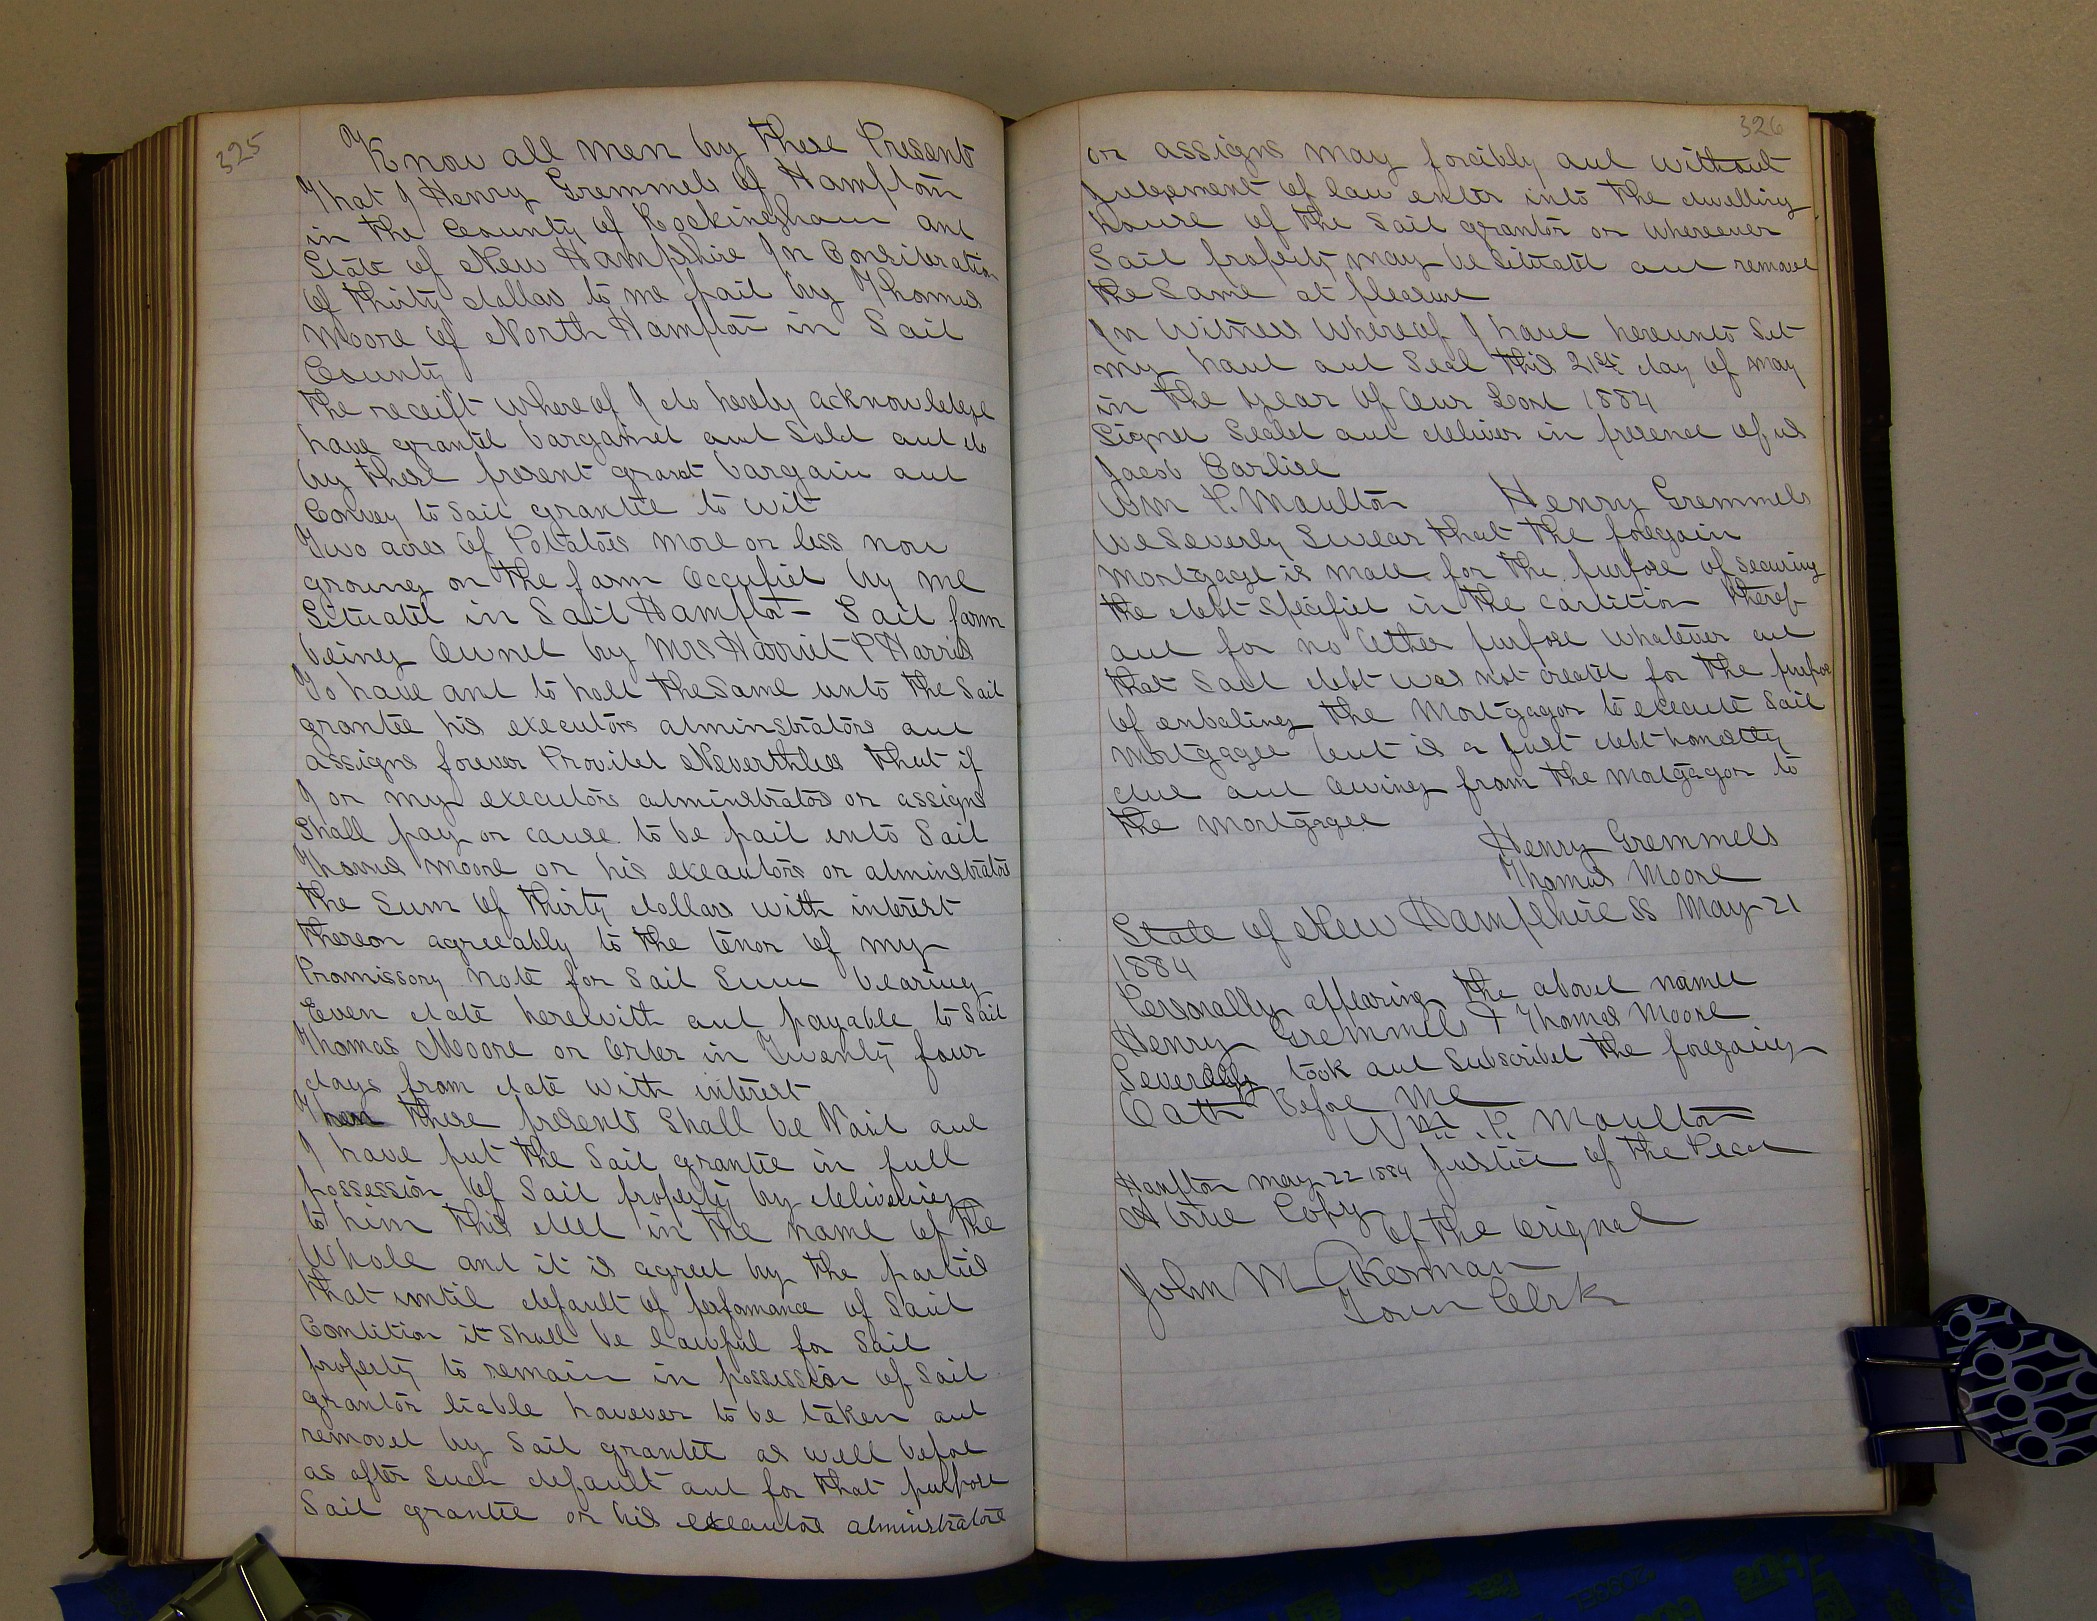 325
Know all men by these Presents
That I Henry Gremmels of Hampton
in the County of Rockingham and
State of New Hampshire In Consideration
of thirty dollars to me paid by Thomas
Moore of North Hampton in Said
County
the receipt whereof I do hereby acknowledge
have granted bargained and Sold and do
by these present grant bargain and
Convey to Said grantee to wit
Two acres of Potatoes more or less now
growing on the farm Occupied by me
Situated in Said Hampton - Said farm
being Owned by Mrs Harriet P Harris
To have and to hold the Same unto the Said
grantee his executors adminstrators and
assigns forever Provided Neverthless that if
I or my executors adminstrators or assigns
Shall pay or cause to be paid unto Said
Thomas Moore or his executors or adminstrators
the Sum of thirty dollars with interest
thereon agreeably to the tenor of my
Promissory Note for Said Sum bearing
Even date herewith and payable to Said
Thomas Moore or Order in Twenty four
days from date with interest
Then these presents Shall be Void and
I have put the Said grantee in full
possession of Said property by delivering
to him this deed in the name of the
Whole and it is agreed by the parties
that until default of performance of Said
Condition it Shall be lawful for Said
property to remain in possession of Said
grantor liable however to be taken and
removed by Said grantee as well before
as after such default and for that purpose
Said grantee or his executors adminstrators
326
or assigns may forcibly and without
Judgement of law enter into the dwelling
house of the Said grantor or whereever
Said property may be Situated and remove
the Same at pleasure
In Witness Whereof I have hereunto Set
my hand and Seal this 21st day of May
in the Year of Our Lord 1884
Signed Sealed and deliver in presence of us
Jacob Carlisle
Wm P. Moulton Henry Gremmels
We Severly Swear that the foregoin
Mortgage is made for the purpose of securing
the debt specified in the condition thereof
and for no Other purpose whatever and
that Said debt was not created for the purpose
of enbaling the Mortgagor to execute Said
Mortgagee but is a just debt honestly
due and Owing from the Mortgagor to
the Mortgagee
Henry Gremmels
Thomas Moore
State of New Hampshire SS May 21
1884
Personally appearing the above named
Henry Gremmels & Thomas Moore
Severally took and Subscribed the foregoing
Oath Before Me
Wm. P. Moulton
Justice of the Peace
Hampton May 22 1884
A true Copy of the Orignal
John M Akerman
Town Clerk